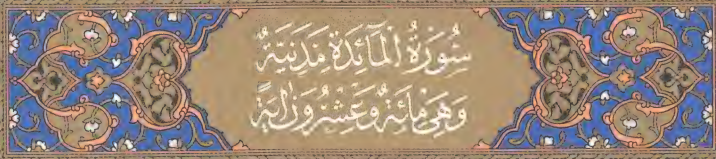 سُورَةُ الْمَآئِدَة مَدَنِيَّةٌ
وَهِىَ مِائَةٌ وَعِشْرُونَ اٰيَةً